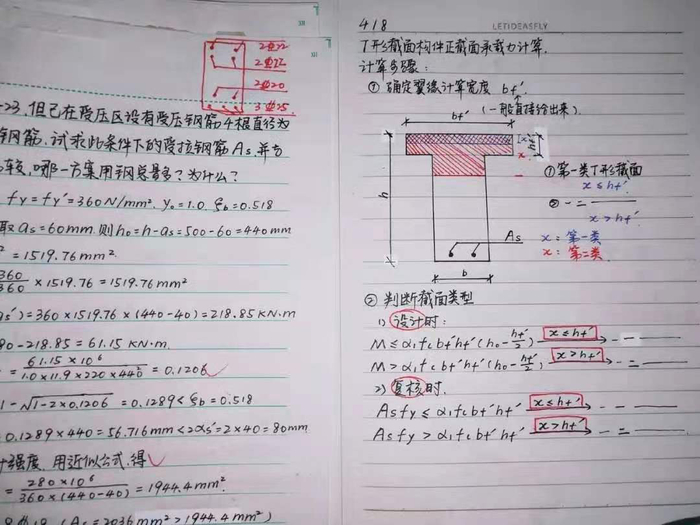 2Φ22
2Φ22
2Φ20
3Φ25
-23,但已在受压区设有受压钢筋4根直径为
钢筋.试求此条件下的受拉钢筋As.并与
比较,哪一方案用钢总量多?为什么?
fy=fy'=360N/mm². γ₀=1.0. ξb=0.518
取as=60mm.则h₀=h-as=500-60=440mm
²=1519.76mm².
360/360×1519.76=1519.76mm²
as')=360×1519.76×(440-40)=218.85KN·m
80-218.85=61.15KN·m.
=61.15×10⁶/1.0×11.9×220×440²=0.1206
1-√1-2×0.1206=0.1289<ξb=0.518
0.1289×440=56.716mm<2αs'=2×40=80mm
强度.用近似公式.得
=280×10⁶/360×(440-40)=1944.4mm².
(As=2036mm²>1944.4mm²)
418
LEFIDEASFLY
T形截面构件正截面承载力计算.
计算步骤:
①确定翼缘计算宽度 bf'
(一般直接给出来)
bf'
x
hf'
x
h
As
b
①第一类T形截面
x≤hf'
②-二--
x>hf'
x:第一类
x:第二类
②判断截面类型
1)设计时:
M≤α₁fcbf'hf'(h₀-hf'/2) x≤hf' → - 一 —
M>α₁fcbf'hf'(h₀-hf'/2) x>hf' → - 二 —
2)复核时.
Asfy≤α₁fcbf'hf' x≤hf' → - 一 — —
Asfy>α₁fcbf'hf' x>hf' → - 二 — —